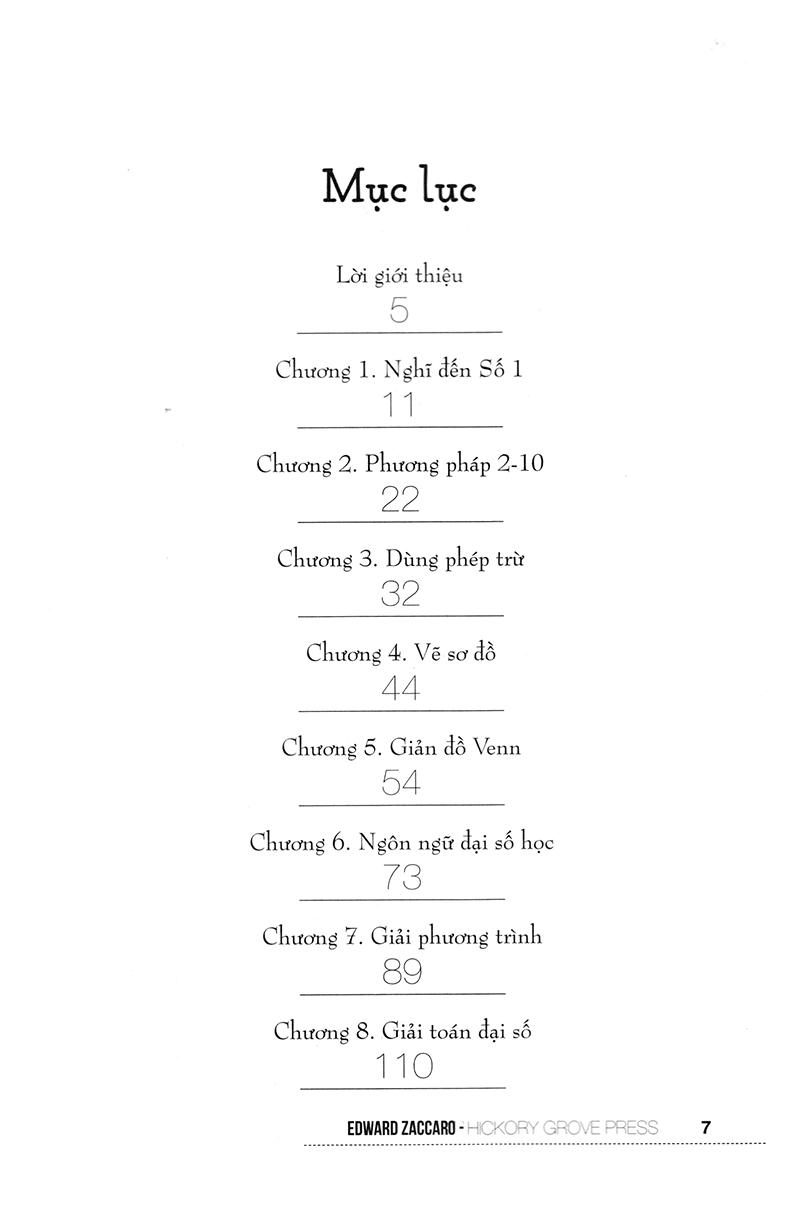 Mục lục
Lời giới thiệu
5
Chương 1. Nghĩ đến Số 1
11
Chương 2. Phương pháp 2-10
22
Chương 3. Dùng phép trừ
32
Chương 4. Vẽ sơ đồ
44
Chương 5. Giản đồ Venn
54
Chương 6. Ngôn ngữ đại số học
73
Chương 7. Giải phương trình
89
Chương 8. Giải toán đại số
110
EDWARD ZACCARO - HICKORY GROVE PRESS 7